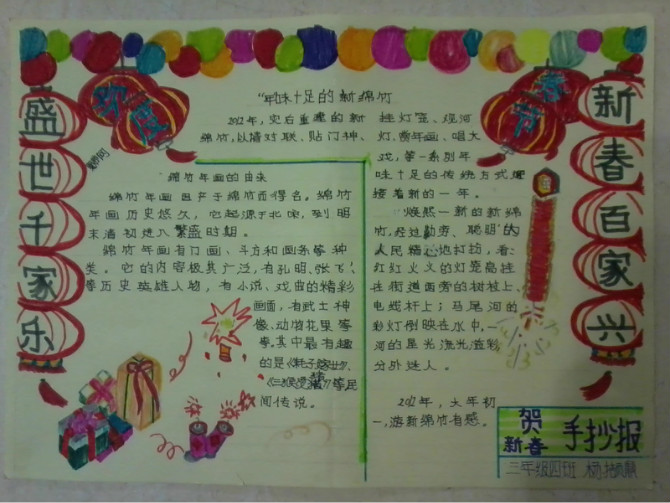 欢度
春节
盛世千家乐
新春百家兴
“年味十足的新绵竹
2012年,灾后重建的新
绵竹,以猜对联、贴门神、
挂灯笼、观河
灯、赏年画、唱大
戏,等一系别年
味十足的传统方式,迎
接着新的一年。
焕然一新的新绵
竹,经过勤劳、聪明的
人民精心地打扮,看:
红红火火的灯笼高挂
在街道两旁的树枝上、
电缆杆上;马尾河的
彩灯倒映在水中,一
河的星光流光溢彩
分外迷人。
2012年,大年初
一,游新绵竹有感。
绵竹年画的由来
绵竹年画因产于绵竹而得名。绵竹
年画历史悠久,它起源于北宋,到明
末清初进入繁盛时期。
绵竹年画有门画、斗方和画条等种
类。它的内容极其广泛,有孔明、张飞
等历史英雄人物,有小说、戏曲的精彩
画面,有武士神
像、动物花果等
等。其中最有趣
的是《耗子嫁女》、
等民
间传说。
贺
新春
手抄报
三年级四班 杨